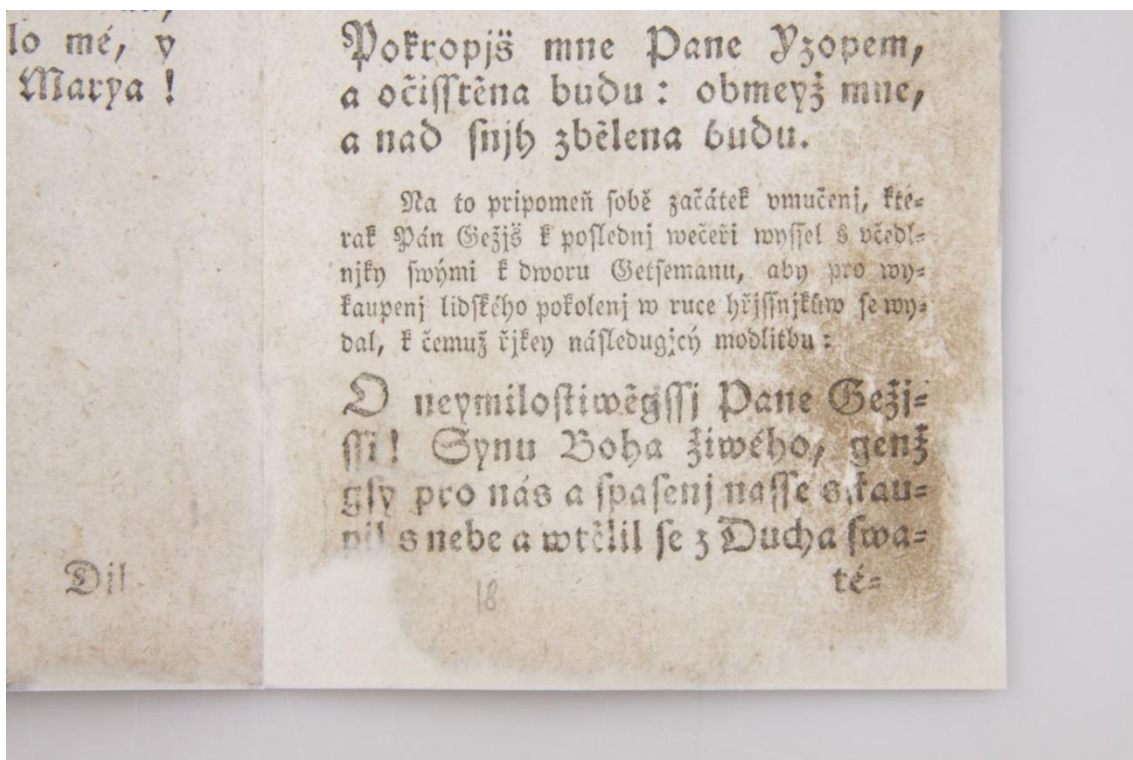 lo mé, y
Marya !
Dil
Pokropjš mne Pane Yzopem,
a očiſſtěna budu : obmeyž mne,
a nad ſnjh zbělena budu.
Na to pripomeň ſobě začátek vmučenj, kte⸗
rak Pán Gežjš k poſlednj wečeři wyſſel s včedl⸗
njky ſwými k dworu Getſemanu, aby pro wy⸗
kaupenj lidſkého pokolenj w ruce hřjſſnjkůw ſe wy⸗
dal, k čemuž řjkey náſledugjcý modlitbu :
O neymiloſtiwěgſſj Pane Gežj⸗
ſſi ! Synu Boha žiwého, genž
gſy pro nás a ſpaſenj naſſe sſtau⸗
pil s nebe a wtělil ſe z Ducha ſwa⸗
té⸗
18